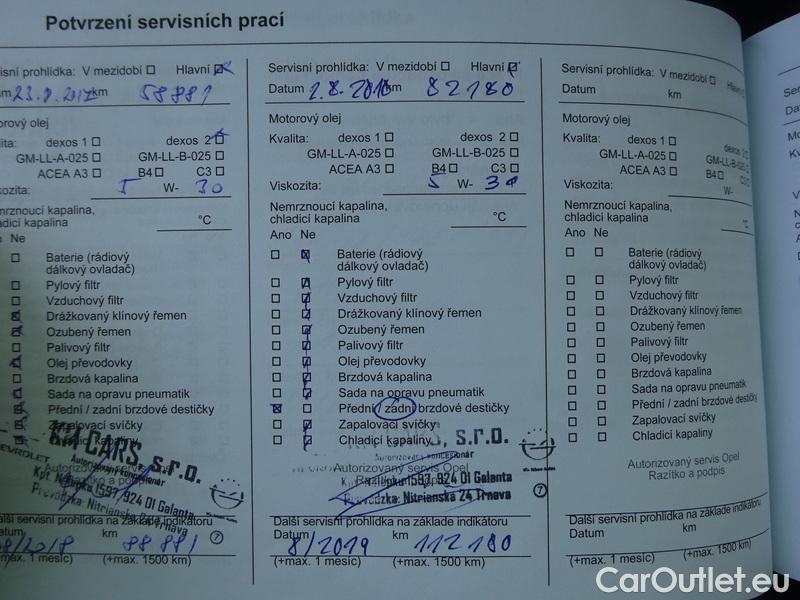 Potvrzení servisních prací
isní prohlídka: V mezidobí Hlavní
um 23.8.2017 km 58881
torový olej
lita: dexos 1 dexos 2
GM-LL-A-025 GM-LL-B-025
ACEA A3 B4 C3
kozita: 5 W- 30
mrznoucí kapalina,
adicí kapalina °C
o Ne
Baterie (rádiový
dálkový ovladač)
Pylový filtr
Vzduchový filtr
Drážkovaný klínový řemen
Ozubený řemen
Palivový filtr
Olej převodovky
Brzdová kapalina
Sada na opravu pneumatik
Přední / zadní brzdové destičky
Zapalovací svíčky
Chladicí kapaliny
KM CARS, s.r.o.
CHEVROLET
Autorizovaný servis Opel
Autorizovaný koncesionár
Razítko a podpis
1597, 924 01 Galanta
Prevádzka: Nitrianska 24 Trnava
7
Další servisní prohlídka na základě indikátoru
Datum km
8/2018 88 881
(+max. 1 měsíc) (+max. 1500 km)
Servisní prohlídka: V mezidobí Hlavní
Datum 2.8.2018 km 82180
Motorový olej
Kvalita: dexos 1 dexos 2
GM-LL-A-025 GM-LL-B-025
ACEA A3 B4 C3
Viskozita: 5 W- 30
Nemrznoucí kapalina,
chladicí kapalina °C
Ano Ne
Baterie (rádiový
dálkový ovladač)
Pylový filtr
Vzduchový filtr
Drážkovaný klínový řemen
Ozubený řemen
Palivový filtr
Olej převodovky
Brzdová kapalina
Sada na opravu pneumatik
Přední / zadní brzdové destičky
Zapalovací svíčky
Chladicí kapaliny
CARS, s.r.o.
Autorizovaný koncesionár
Autorizovaný servis Opel
Razítko a podpis
1597, 924 01 Galanta
Prevádzka: Nitrianska 24 Trnava
7
Další servisní prohlídka na základě indikátoru
Datum km
8/2019 112 180
(+max. 1 měsíc) (+max. 1500 km)
Servisní prohlídka: V mezidobí Hlavní
Datum km
Motorový olej
Kvalita: dexos 1 dexos 2
GM-LL-A-025 GM-LL-B-025
ACEA A3 B4 C3
Viskozita: W-
Nemrznoucí kapalina,
chladicí kapalina °C
Ano Ne
Baterie (rádiový
dálkový ovladač)
Pylový filtr
Vzduchový filtr
Drážkovaný klínový řemen
Ozubený řemen
Palivový filtr
Olej převodovky
Brzdová kapalina
Sada na opravu pneumatik
Přední / zadní brzdové destičky
Zapalovací svíčky
Chladicí kapaliny
Autorizovaný servis Opel
Razítko a podpis
Další servisní prohlídka na základě indikátoru
Datum km
(+max. 1 měsíc) (+max. 1500 km)
CarOutlet.eu